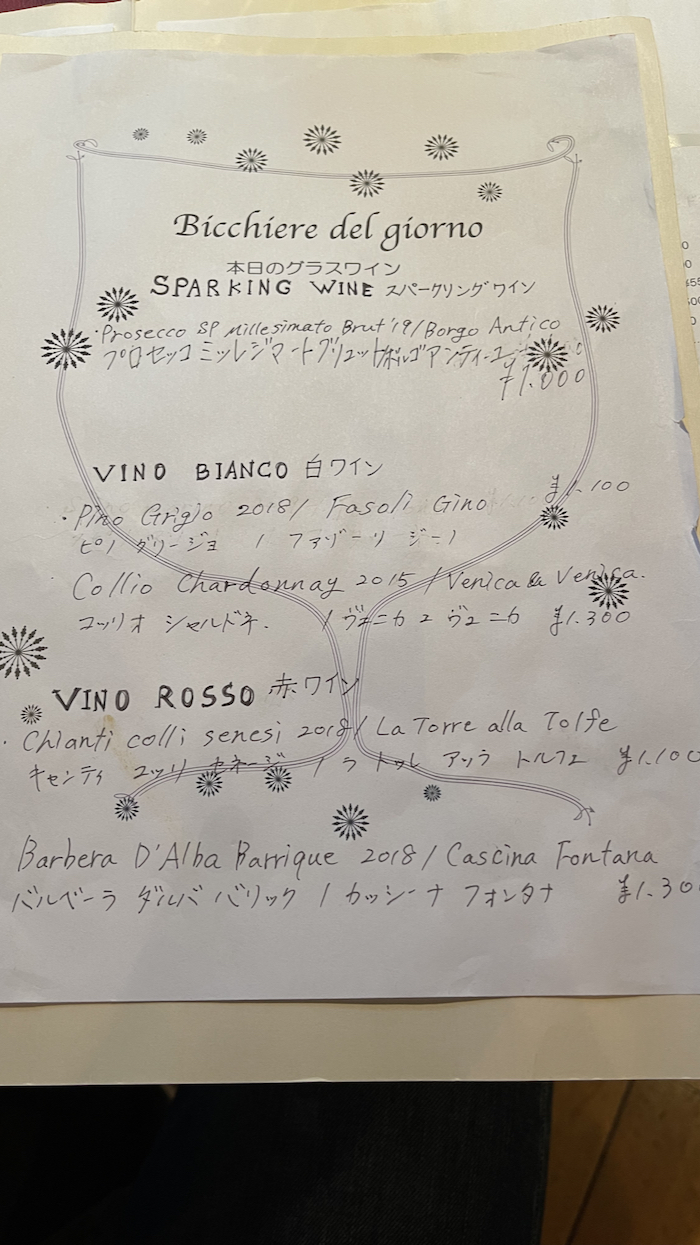 Bicchiere del giorno
本日のグラスワイン
SPARKING WINE スパークリングワイン
・Prosecco SP Millesimato Brut '19/Borgo Antico
プロセッコ ミッレジマート
¥1.000
VINO BIANCO 白ワイン
¥1.100
・Pino Grigio 2018/ Fasoli Gino
ピノ グリージョ / ファゾーリ ジーノ
Collio Chardonnay 2015 / Venica & Venica.
コッリオ シャルドネ. / ヴェニカ エ ヴェニカ ¥1.300
VINO ROSSO 赤ワイン
・Chianti colli senesi 2018/ La Torre alla Tolfe
キャンティ コッリ セネージ / ラ トッレ アッラ トルフェ ¥1.100
Barbera D'Alba Barrique 2018 / Cascina Fontana
バルベーラ ダルバ バリック / カッシーナ フォンタナ ¥1.30